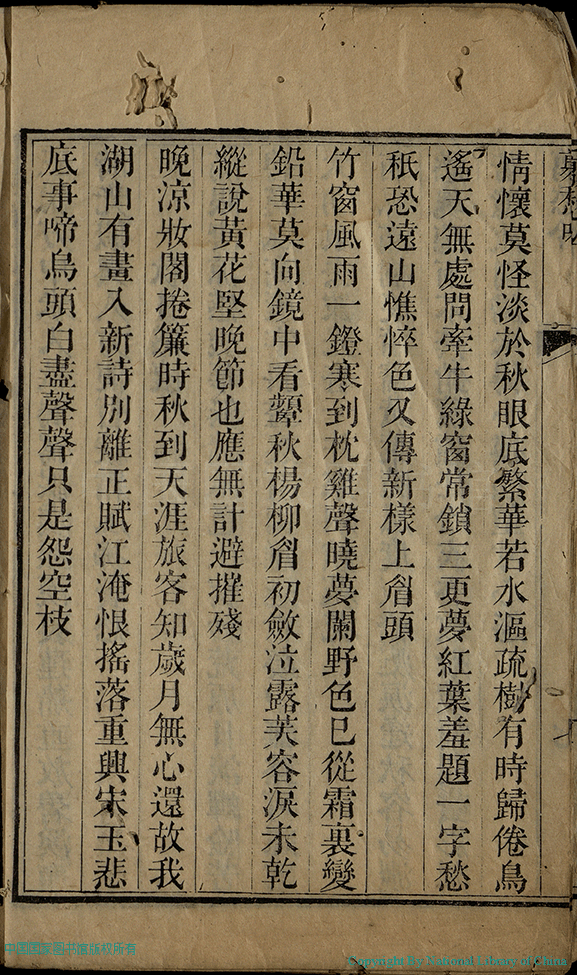 情懷莫怪淡於秋眼底繁華若水漚疏樹有時歸倦鳥
遙天無處問牽牛綠窗常鎖三更夢紅葉羞題一字愁
秖恐遠山憔悴色又傳新樣上眉頭
竹窗風雨一鐙寒到枕雞聲曉夢闌野色已從霜裏變
鉛華莫向鏡中看顰秋楊柳眉初斂泣露芙容淚未乾
縱說黃花堅晚節也應無計避摧殘
晚涼妝閣捲簾時秋到天涯旅客知歲月無心還故我
湖山有畫入新詩別離正賦江淹恨搖落重興宋玉悲
底事啼烏頭白盡聲聲只是怨空枝
中国国家图书馆版权所有
Copyright By National Library of China